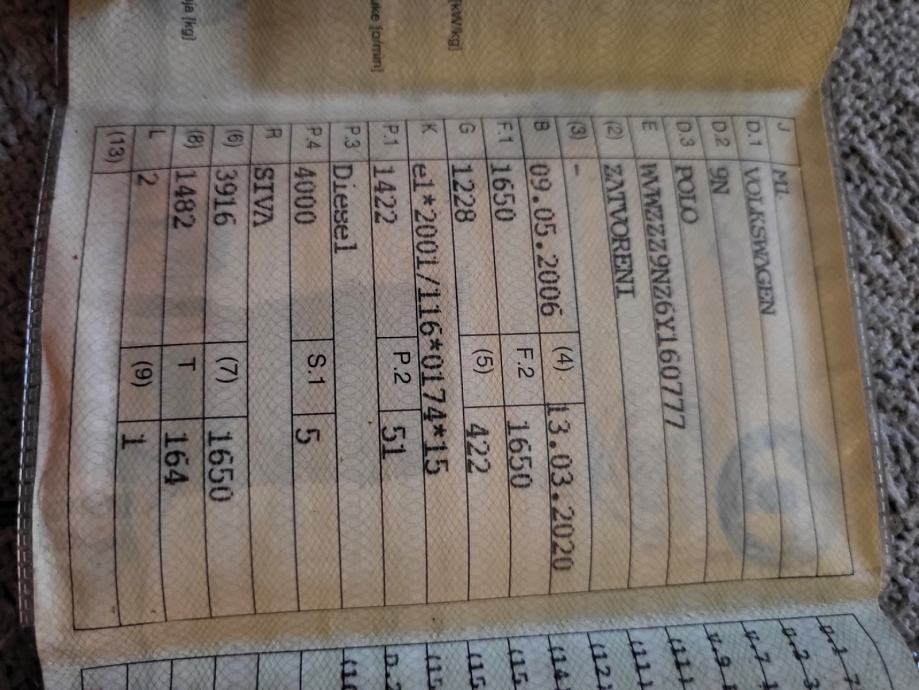 J M1
D.1 VOLKSWAGEN
D.2 9N
D.3 POLO
E WVWZZZ9NZ6Y160777
(2) ZATVORENI
(3) -
B 09.05.2006 (4) 13.03.2020
F.1 1650 F.2 1650
G 1228 (5) 422
K e1*2001/116*0174*15
P.1 1422 P.2 51
P.3 Diesel
P.4 4000 S.1 5
R SIVA
(6) 3916 (7) 1650
(8) 1482 T 164
L 2 (9) 1
(13)
[kW/kg]
[o/min]
[kg]